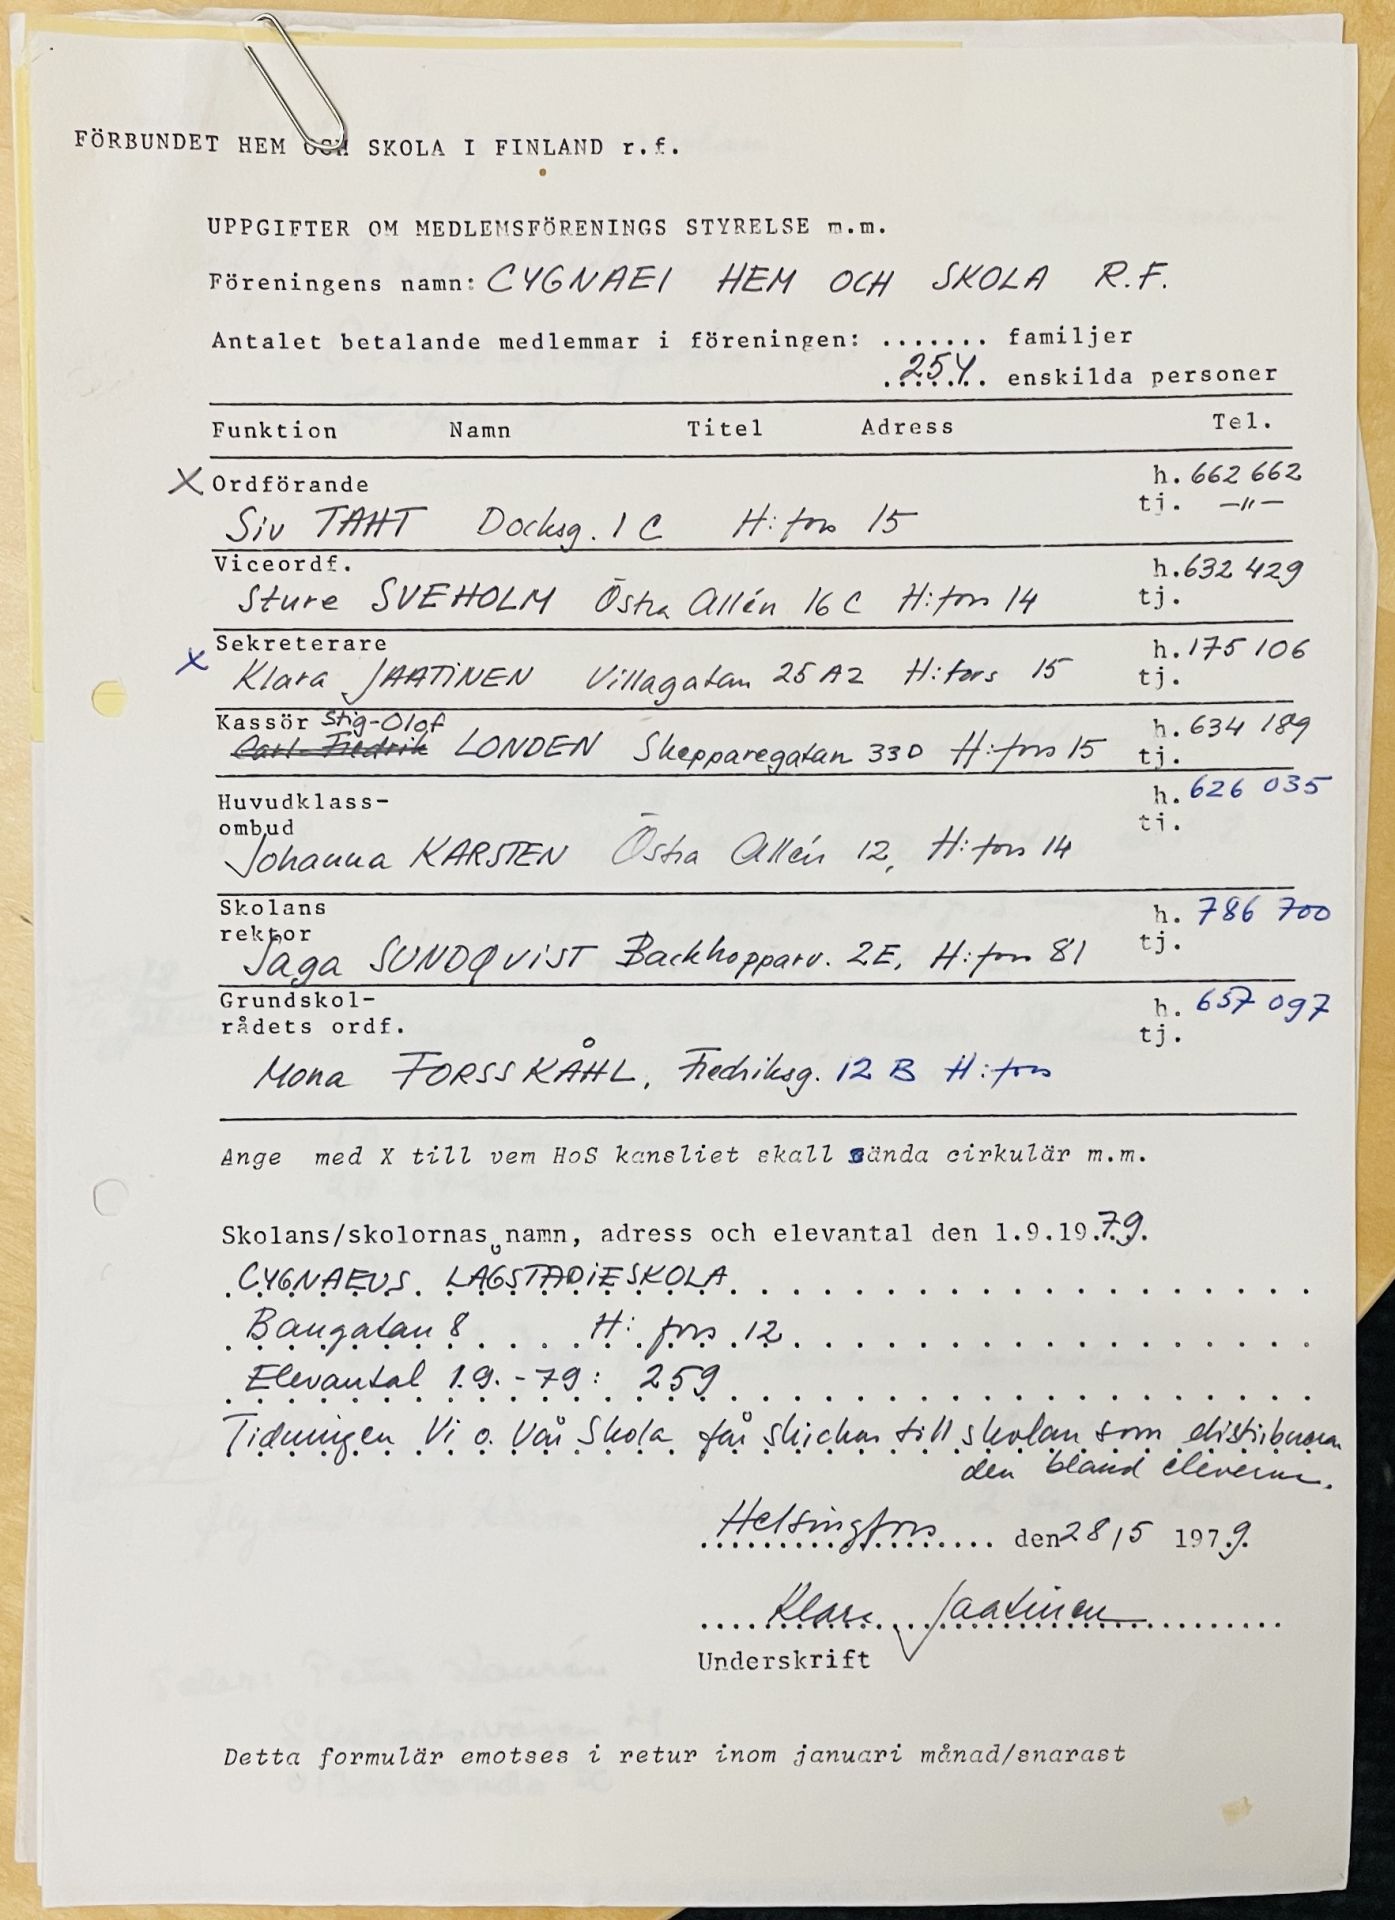 FÖRBUNDET HEM OCH SKOLA I FINLAND r.f.
UPPGIFTER OM MEDLEMSFÖRENINGS STYRELSE m.m.
Föreningens namn: CYGNAEI HEM OCH SKOLA R.F.
Antalet betalande medlemmar i föreningen: ....... familjer
254 enskilda personer
Funktion Namn Titel Adress Tel.
X Ordförande h. 662 662
Siv TAHT Docksg. 1 C H:fors 15 tj. -"-
Viceordf. h. 632 429
Sture SVEHOLM Östra Allén 16 C H:fors 14 tj.
Sekreterare h. 175 106
X Klara JAATINEN Villagatan 25 A 2 H:fors 15 tj.
Kassör Stig-Olof h. 634 189
Carl-Fredrik LONDEN Skepparegatan 33 D H:fors 15 tj.
Huvudklass- h. 626 035
ombud tj.
Johanna KARSTEN Östra Allén 12, H:fors 14
Skolans h. 786 700
rektor tj.
Saga SUNDQVIST Backhopparv. 2E, H:fors 81
Grundskol- h. 657 097
rådets ordf. tj.
Mona FORSSKÅHL, Fredriksg. 12 B H:fors
Ange med X till vem HoS kansliet skall sända cirkulär m.m.
Skolans/skolornas namn, adress och elevantal den 1.9.1979.
CYGNAEUS LÅGSTADIESKOLA
Bangatan 8 H:fors 12
Elevantal 1.9.-79: 259
Tidningen Vi o. Vår Skola får skickas till skolan som distribuerar
den bland eleverna.
Helsingfors den 28/5 1979.
Klara Jaatinen
Underskrift
Detta formulär emotses i retur inom januari månad/snarast